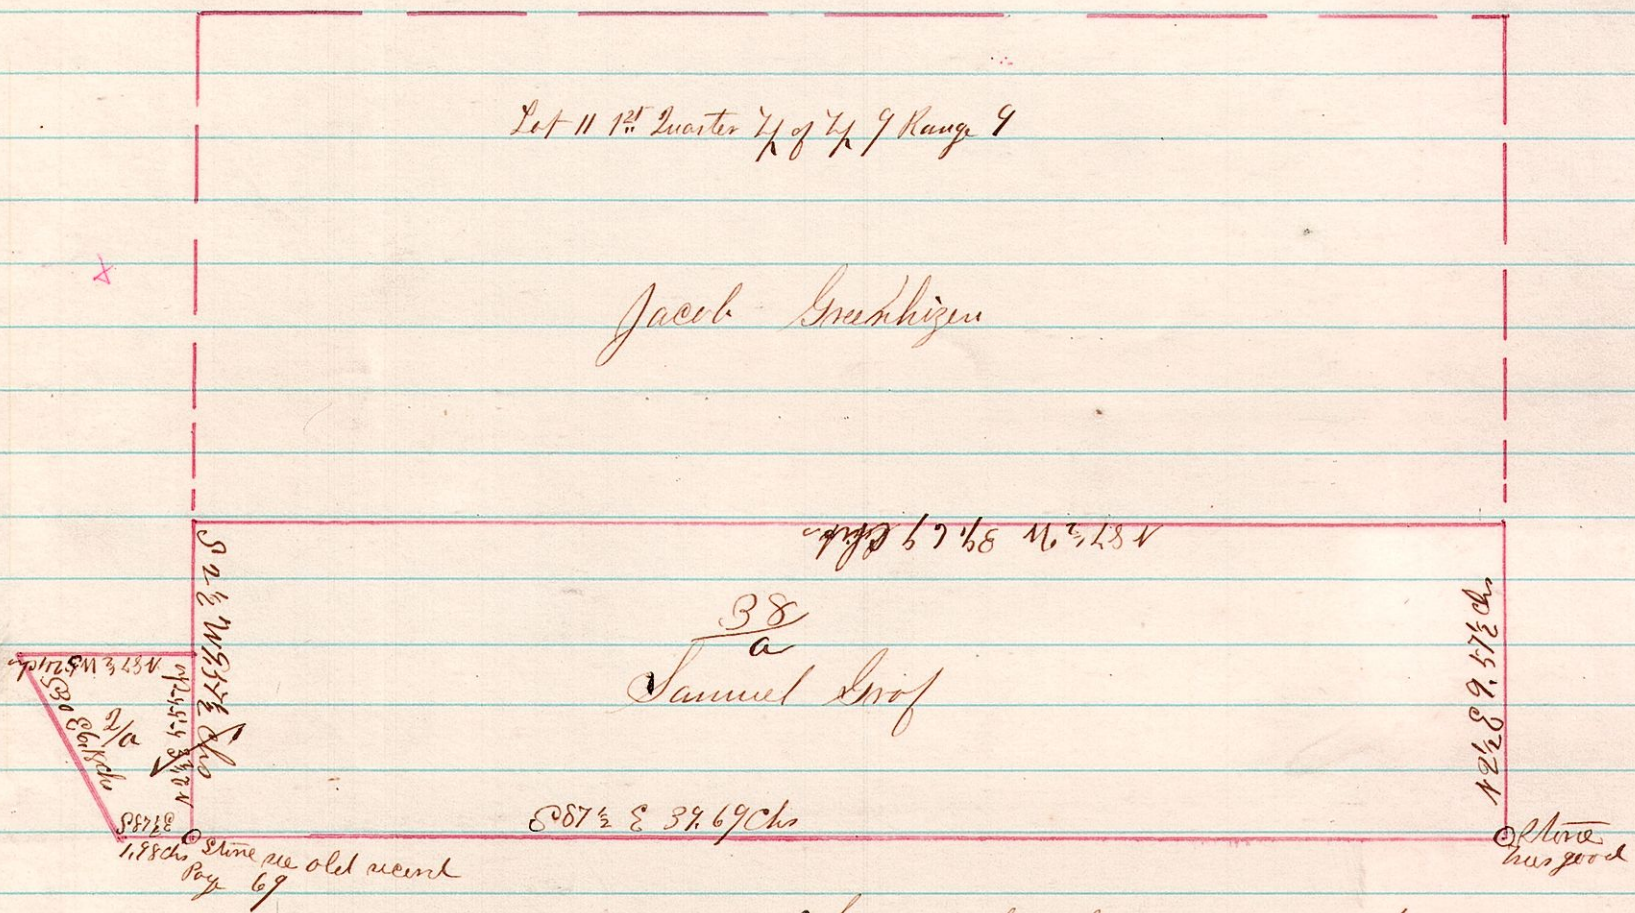 Lot 11 1st Quarter Tp of Tp 9 Range 9
Jacob Greenhizen
N87½ W 39.69 Chs
S 2½ W 9.57½ Chs
38
a
Samuel Grof
N2½ E 9.57½ Chs
N87½ W 5.
N2½ E
2/a
S30 E 6.
S87½ E
1.98 Chs
S87½ E 39.69 Chs
Stone see old record
Page 69
Stone
good